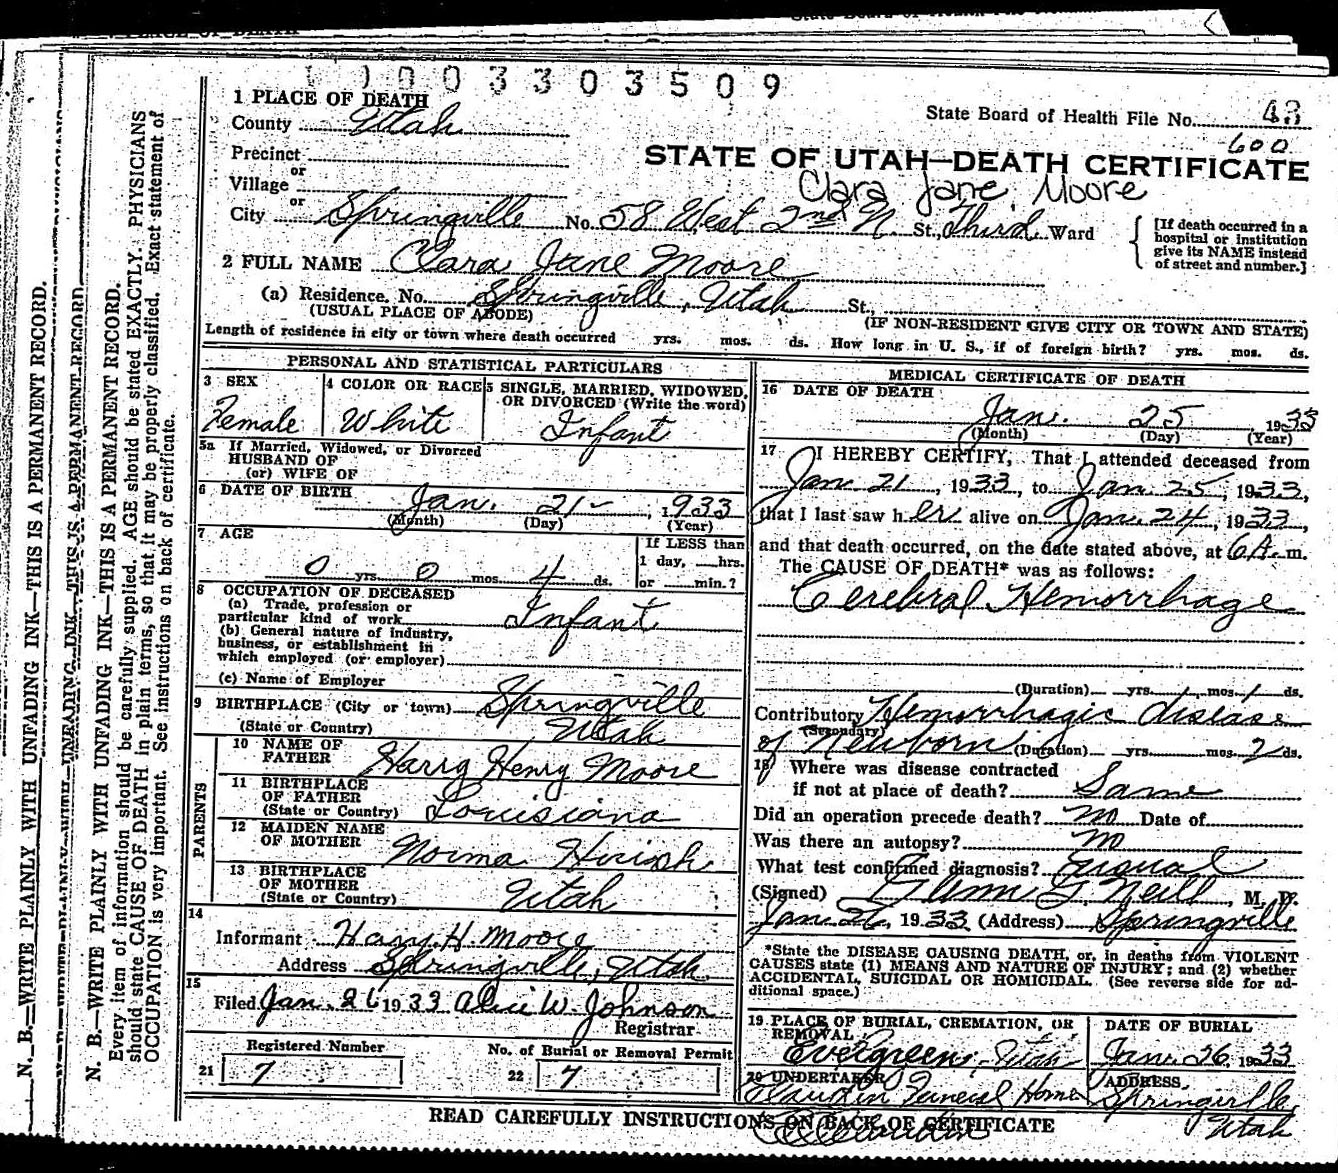 1 0 0 3 3 0 3 5 0 9
1 PLACE OF DEATH
State Board of Health File No. 43
County Utah
600
Precinct
STATE OF UTAH—DEATH CERTIFICATE
or
Village
Clara Jane Moore
or
City Springville No. 58 West 2nd N. St., Third Ward
[If death occurred in a
hospital or institution
give its NAME instead
of street and number.]
2 FULL NAME Clara Jane Moore
(a) Residence. No. Springville, Utah St.,
(USUAL PLACE OF ABODE)
(IF NON-RESIDENT GIVE CITY OR TOWN AND STATE)
Length of residence in city or town where death occurred yrs. mos. ds. How long in U. S., if of foreign birth? yrs. mos. ds.
PERSONAL AND STATISTICAL PARTICULARS
3 SEX
Female
4 COLOR OR RACE
White
5 SINGLE, MARRIED, WIDOWED,
OR DIVORCED (Write the word)
Infant
5a If Married, Widowed, or Divorced
HUSBAND OF
(or) WIFE OF
6 DATE OF BIRTH
Jan. 21- , 1933
(Month) (Day) (Year)
7 AGE
0 yrs. 0 mos. 4 ds.
If LESS than
1 day, hrs.
or min.?
8 OCCUPATION OF DECEASED
(a) Trade, profession or
particular kind of work Infant
(b) General nature of industry,
business, or establishment in
which employed (or employer)
(c) Name of Employer
9 BIRTHPLACE (City or town) Springville
(State or Country) Utah
PARENTS
10 NAME OF
FATHER Harry Henry Moore
11 BIRTHPLACE
OF FATHER
(State or Country) Louisiana
12 MAIDEN NAME
OF MOTHER Norma
13 BIRTHPLACE
OF MOTHER
(State or Country) Utah
14
Informant Harry H. Moore
Address Springville, Utah
15
Filed Jan. 26 1933 Alice W. Johnson
Registrar
Registered Number
21 7
No. of Burial or Removal Permit
22 7
MEDICAL CERTIFICATE OF DEATH
16 DATE OF DEATH
Jan. 25 , 1933
(Month) (Day) (Year)
17 I HEREBY CERTIFY, That I attended deceased from
Jan 21, 1933, to Jan 25, 1933,
that I last saw her alive on Jan. 24, 1933,
and that death occurred, on the date stated above, at 6 A. m.
The CAUSE OF DEATH* was as follows:
Cerebral Hemorrhage
(Duration) yrs. mos. 1 ds.
Contributory Hemorrhagic disease
(Secondary)
of Newborn (Duration) yrs. mos. 2 ds.
18 Where was disease contracted
if not at place of death? Same
Did an operation precede death? no Date of
Was there an autopsy? no
What test confirmed diagnosis?
(Signed) Glenn G. Neill, M. D.
Jan 26, 1933 (Address) Springville
*State the DISEASE CAUSING DEATH, or, in deaths from VIOLENT
CAUSES state (1) MEANS AND NATURE OF INJURY; and (2) whether
ACCIDENTAL, SUICIDAL OR HOMICIDAL. (See reverse side for ad-
ditional space.)
19 PLACE OF BURIAL, CREMATION, OR
REMOVAL
Evergreen, Utah
DATE OF BURIAL
Jan. 26, 1933
20 UNDERTAKER
Funeral Home
ADDRESS
Springville,
Utah
READ CAREFULLY INSTRUCTIONS ON BACK OF CERTIFICATE
N. B.—WRITE PLAINLY WITH UNFADING INK—THIS IS A PERMANENT RECORD.
N. B.—WRITE PLAINLY WITH UNFADING INK—THIS IS A PERMANENT RECORD.
Every item of information should be carefully supplied. AGE should be stated EXACTLY. PHYSICIANS
should state CAUSE OF DEATH in plain terms, so that it may be properly classified. Exact statement of
OCCUPATION is very important. See instructions on back of certificate.